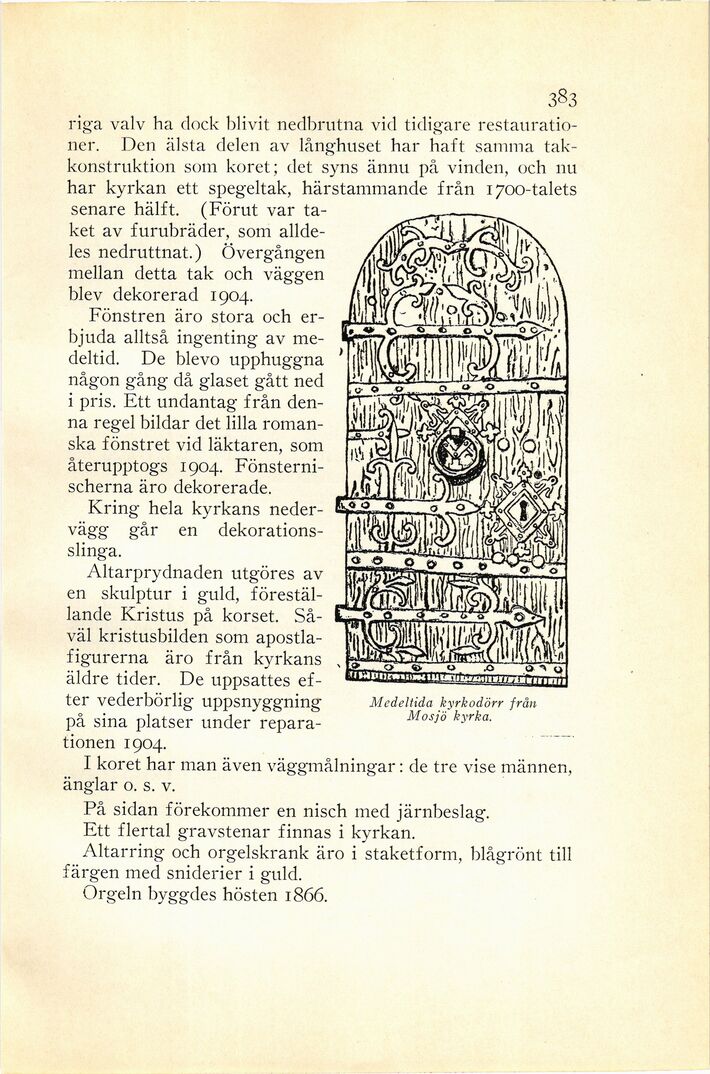 383
riga valv ha dock blivit nedbrutna vid tidigare restauratio-
ner. Den älsta delen av långhuset har haft samma tak-
konstruktion som koret; det syns ännu på vinden, och nu
har kyrkan ett spegeltak, härstammande från 1700-talets
senare hälft. (Förut var ta-
ket av furubräder, som allde-
les nedruttnat.) Övergången
mellan detta tak och väggen
blev dekorerad 1904.
Fönstren äro stora och er-
bjuda alltså ingenting av me-
deltid. De blevo upphuggna
någon gång då glaset gått ned
i pris. Ett undantag från den-
na regel bildar det lilla roman-
ska fönstret vid läktaren, som
återupptogs 1904. Fönsterni-
scherna äro dekorerade.
Kring hela kyrkans neder-
vägg går en dekorations-
slinga.
Altarprydnaden utgöres av
en skulptur i guld, förestäl-
lande Kristus på korset. Så-
väl kristusbilden som apostla-
figurerna äro från kyrkans
äldre tider. De uppsattes ef-
ter vederbörlig uppsnyggning
på sina platser under repara-
tionen 1904.
Medeltida kyrkodörr från
Mosjö kyrka.
I koret har man även väggmålningar: de tre vise männen,
änglar o. s. v.
På sidan förekommer en nisch med järnbeslag.
Ett flertal gravstenar finnas i kyrkan.
Altarring och orgelskrank äro i staketform, blågrönt till
färgen med sniderier i guld.
Orgeln byggdes hösten 1866.